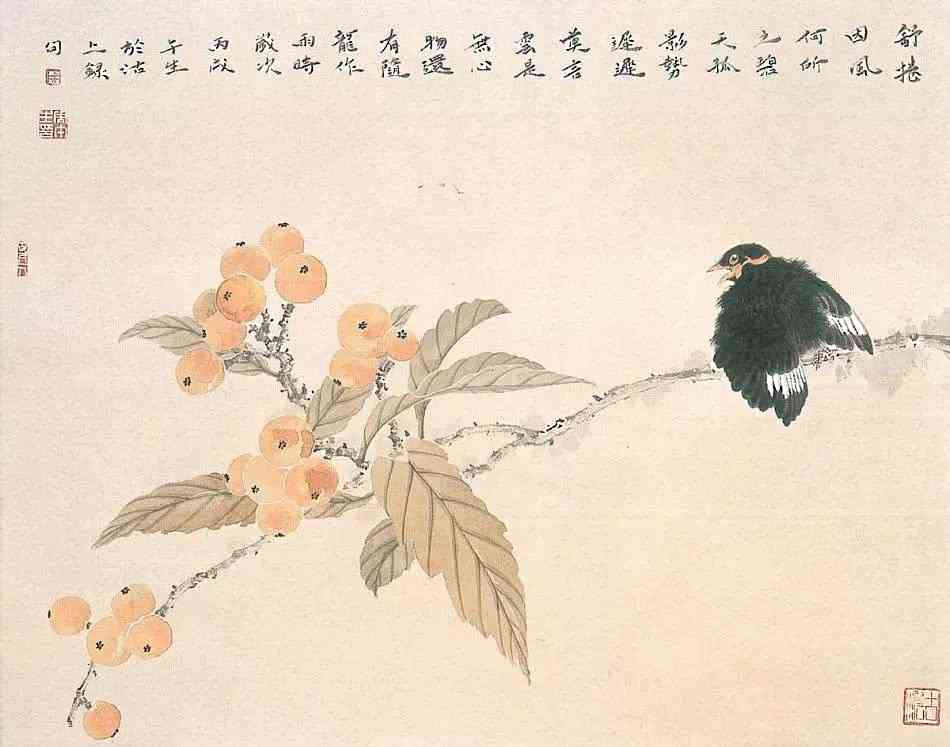 舒捲
因風
何所
之碧
天孤
影勢
遲遲
莫言
雲是
無心
物還
有隨
龍作
雨時
歲次
丙戌
午生
於沽
上録
句